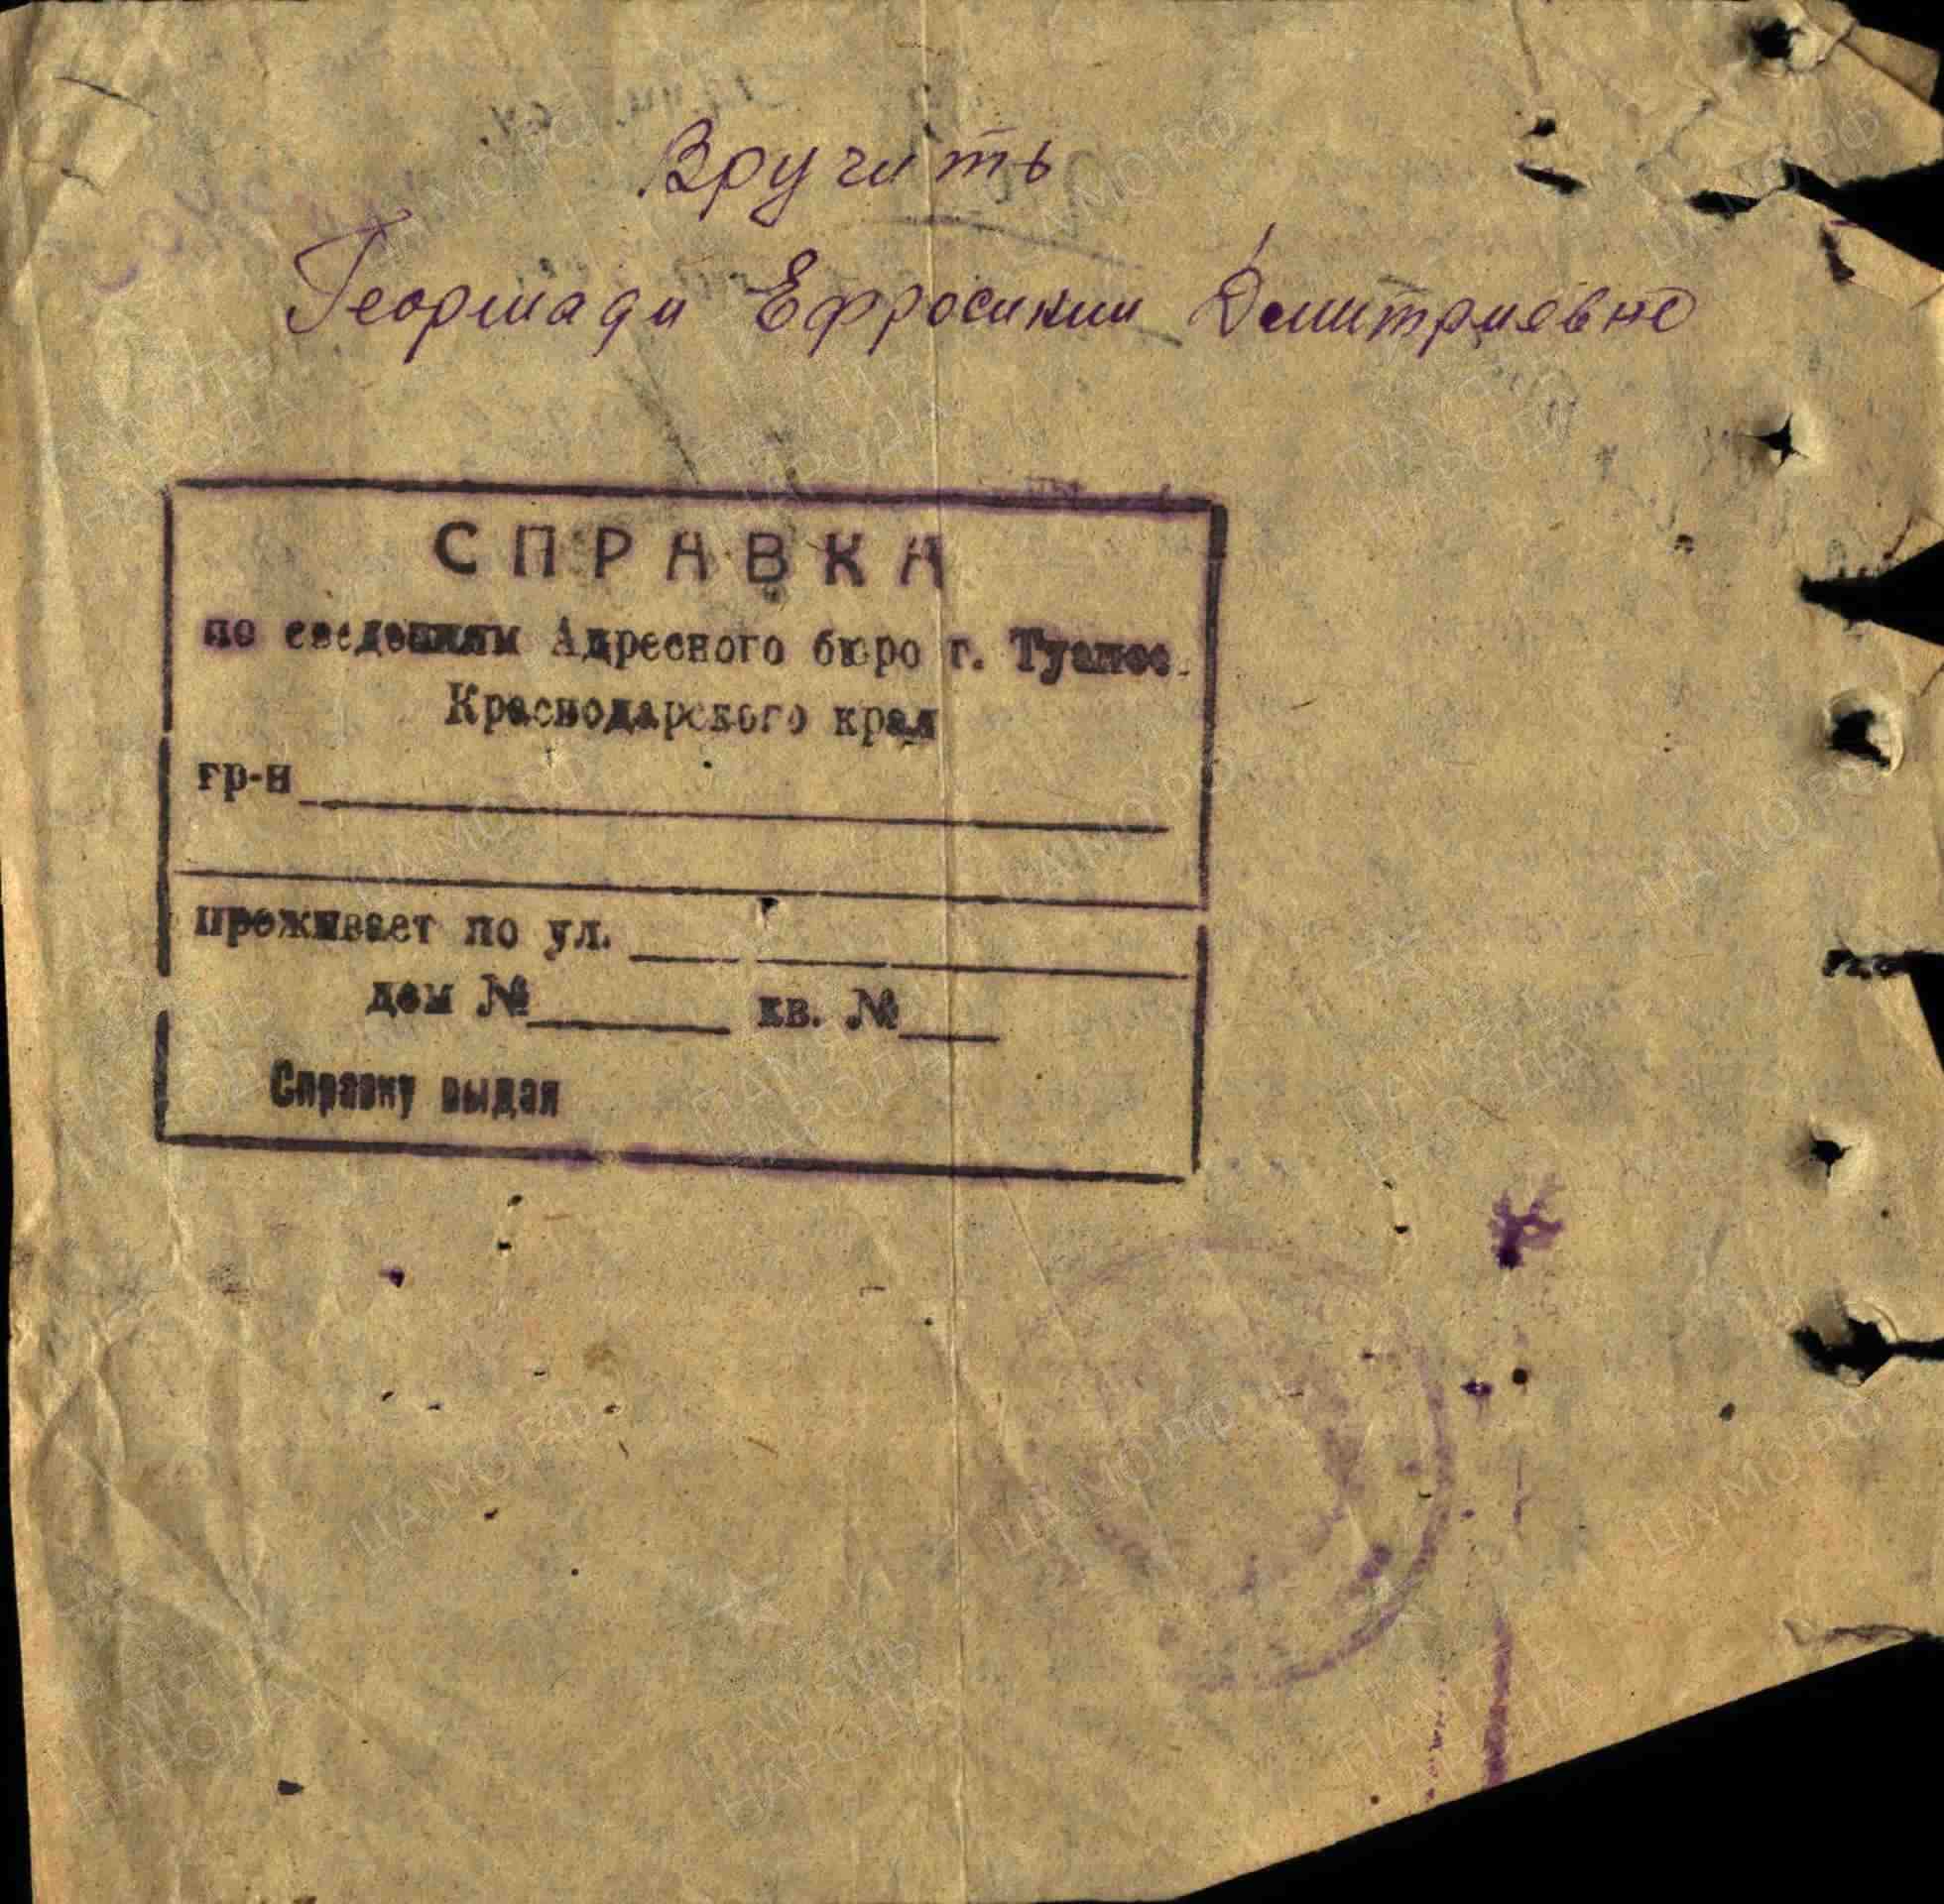 Вручить
Георгиади Ефросинии Дмитриевне
СПРАВКА
по сведениям Адресного бюро г. Туапсе
Краснодарского края
гр-н
проживает по ул.
дом № кв. №
Справку выдал
ЦАМО РФ
ПАМЯТЬ НАРОДА